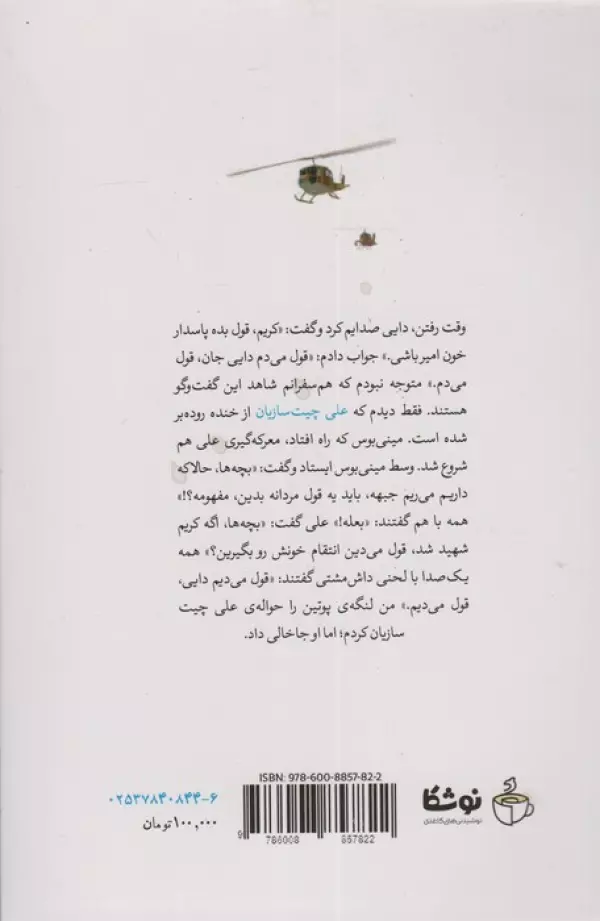 وقت رفتن، دایی صدایم کرد و گفت: «کریم، قول بده پاسدار
خون امیر باشی.» جواب دادم: «قول می‌دم دایی جان، قول
می‌دم.» متوجه نبودم که هم‌سفرانم شاهد این گفت‌وگو
هستند. فقط دیدم که علی چیت‌سازیان از خنده روده‌بر
شده است. مینی‌بوس که راه افتاد، معرکه‌گیری علی هم
شروع شد. وسط مینی‌بوس ایستاد و گفت: «بچه‌ها، حالا که
داریم می‌ریم جبهه، باید یه قول مردانه بدین، مفهومه؟!»
همه با هم گفتند: «بعله!» علی گفت: «بچه‌ها، اگه کریم
شهید شد، قول می‌دین انتقام خونش رو بگیرین؟» همه
یک‌صدا با لحنی داش‌مشتی گفتند: «قول می‌دیم دایی،
قول می‌دیم.» من لنگه‌ی پوتین را حواله‌ی علی چیت
سازیان کردم؛ اما او جاخالی داد.
ISBN: 978-600-8857-82-2
9 786008 857822
نوشکا
نوشیدنی‌های کاغذی
۰۲۵۳۷۸۴۰۸۴۴-۶
۱۰۰,۰۰۰ تومان